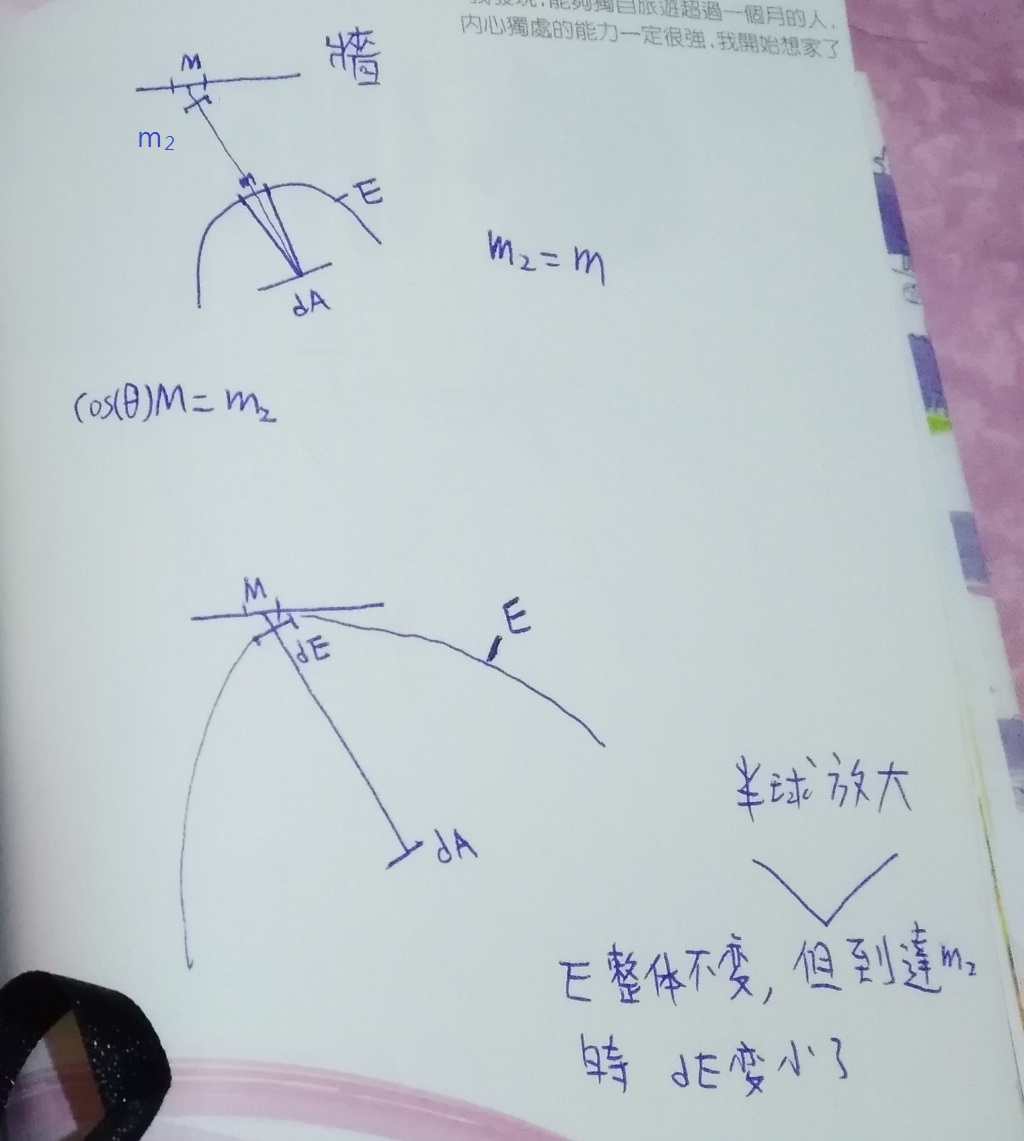 能夠獨自旅遊超過一個月的人,
內心獨處的能力一定很強,我開始想家了
M
牆
m₂
m
E
m₂=m
dA
cos(θ)M=m₂
M
E
dE
dA
半球放大
E整体不变,但到達m₂
時 dE变小了